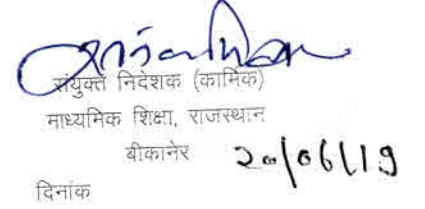 संयुक्त निदेशक (कार्मिक)
माध्यमिक शिक्षा, राजस्थान
बीकानेर 20/06/19
दिनांक